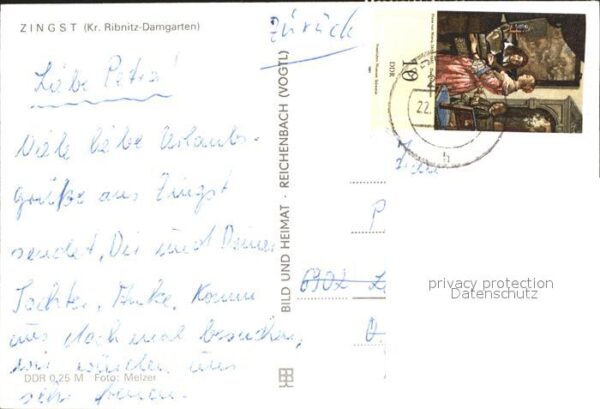 ZINGST (Kr. Ribnitz-Damgarten)
Zurück
Liebe Petra!
Viele liebe Urlaubs-
grüße aus Zingst
sendet Dir und Deiner
Tochter, Anke. Komm
uns doch mal besuchen,
wir würden uns
sehr freuen.
DDR 0,25 M Foto: Melzer
BILD UND HEIMAT · REICHENBACH (VOGTL)
10
DDR
22.
h
P
6902
privacy protection
Datenschutz